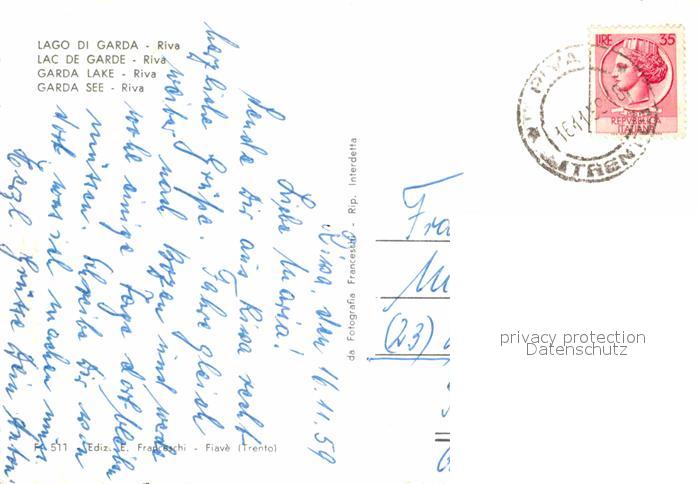 LAGO DI GARDA - Riva
LAC DE GARDE - Riva
GARDA LAKE - Riva
GARDA SEE - Riva
Riva, den 16.11.59
Liebe Maria!
Sende dir aus Riva recht
herzliche Grüße. Fahre gleich
weiter nach Bozen und werde
wohl einige Tage dortbleiben
müssen. Schreibe dir wenn
dort was viel machen muss
Herzl. Grüsse Dein Anton
F. 511 Ediz. E. Franceschi - Fiavè (Trento)
da Fotografia Franceschi - Rip. Interdetta
LIRE 35
REPVBBLICA
ITALIANA
RIVA
16.11.59
(TRENTO)
Fra
(23)
privacy protection
Datenschutz